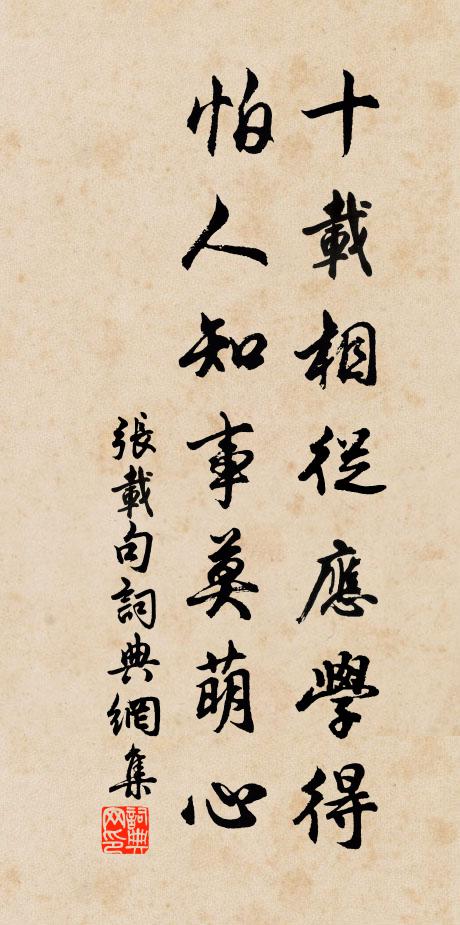 十載相從應學得
怕人知事莫萌心
張載句詞典網集
詞典网印